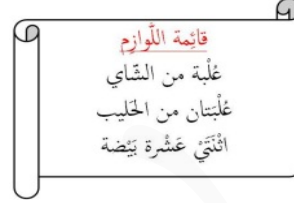 قائِمة اللَّوازِم
عُلْبة من الشّاي
عُلْبَتان من الحَليب
اثْنَتَيْ عَشْرة بَيْضة